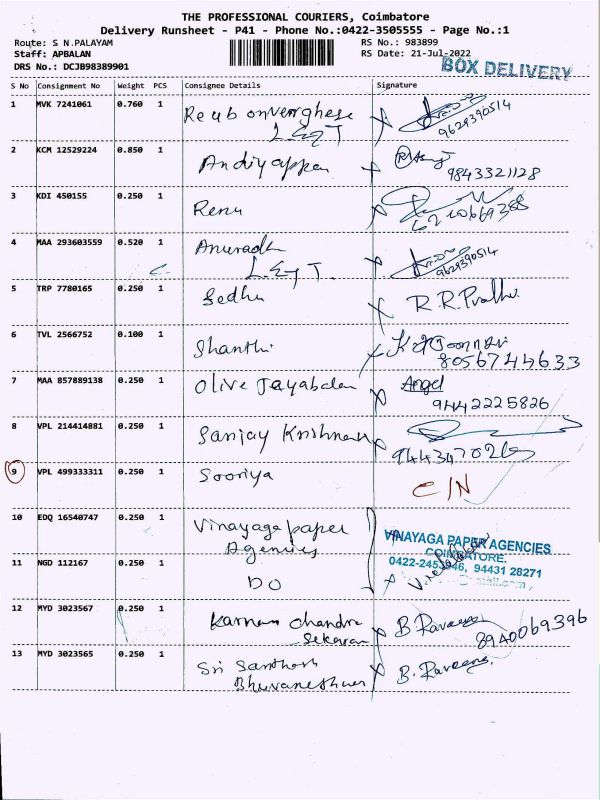 THE PROFESSIONAL COURIERS, Coimbatore
Delivery Runsheet - P41 - Phone No.:0422-3505555 - Page No.:1
Route: S N.PALAYAM RS No.: 983899
Staff: APBALAN RS Date: 21-Jul-2022
DRS No.: DCJB98389901 BOX DELIVERY
S No Consignment No Weight PCS Consignee Details Signature
1 MVK 7241061 0.760 1
L&T 9629390514
2 KCM 12529224 0.850 1 Andiyappan 9843321128
3 KDI 450155 0.250 1 Renu
4 MAA 293603559 0.520 1 Anuradha
L&T. 9629390514
5 TRP 7780165 0.250 1 Sedhu R.R.Prabhu
6 TVL 2566752 0.100 1 Shanthi
8056744633
7 MAA 857889138 0.250 1 Olive Jayabalan Angel
9442225826
8 VPL 214414881 0.250 1 Sanjay Krishnan
9 VPL 499333311 0.250 1 Sooriya C/N
10 EDQ 16540747 0.250 1 Vinayaga paper
Agencies
VINAYAGA PAPER AGENCIES
COIMBATORE.
11 NGD 112167 0.250 1 DO 94431 28271
12 MYD 3023567 0.250 1 Karnan Chandra
Sekaran B. Raveena 8940069396
13 MYD 3023565 0.250 1 Sri Santhosh
Bhuvaneshwari B. Raveena